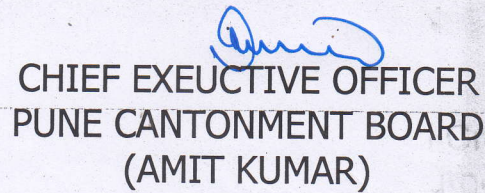 CHIEF EXEUCTIVE OFFICER
PUNE CANTONMENT BOARD
(AMIT KUMAR)